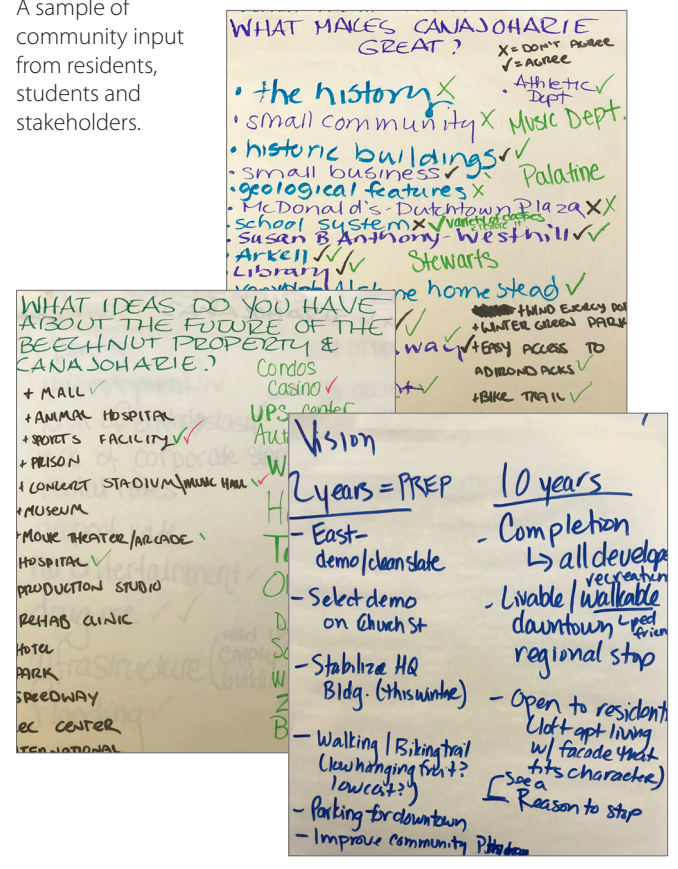 A sample of
community input
from residents,
students and
stakeholders.
WHAT MAKES CANAJOHARIE
GREAT?
X = DON'T AGREE
✓ = AGREE
• the history X
• small community X
• historic buildings ✓✓
• small business ✓
• geological features X
• McDonald's - Dutchtown Plaza X X
• school system X ✓ variety of
• Susan B Anthony - Westhill ✓✓
• Arkell ✓✓✓
• Library ✓✓
homestead ✓
• Athletic ✓
Dept
Music Dept.
Palatine
Stewarts
+WIND ENERGY
+WINTER GREEN PARK
+EASY ACCESS TO
ADIRONDACKS ✓
+BIKE TRAIL ✓
WHAT IDEAS DO YOU HAVE
ABOUT THE FUTURE OF THE
BEECHNUT PROPERTY &
CANAJOHARIE?
+ MALL ✓
+ ANIMAL HOSPITAL
+ SPORTS FACILITY ✓✓
+ PRISON
+ CONCERT STADIUM/MUSIC HALL ✓
+MUSEUM
+MOVIE THEATER/ARCADE
HOSPITAL ✓
PRODUCTION STUDIO
REHAB CLINIC
HOTEL
PARK
SPEEDWAY
EC CENTER
Condos
Casino ✓
UPS center
Vision
2 years = PREP
- East-
demo/clean slate
- Select demo
on Church St
- Stabilize HQ
Bldg. (this winter)
- Walking / Biking trail
(low hanging fruit?
low cost?)
- Parking for downtown
- Improve community
10 years
- Completion
↳ all develop
recreation
- Livable / walkable
downtown ↳ ped
frien
regional stop
- Open to resident
(loft apt living
w/ facade that
fits character)
See a
Reason to stop